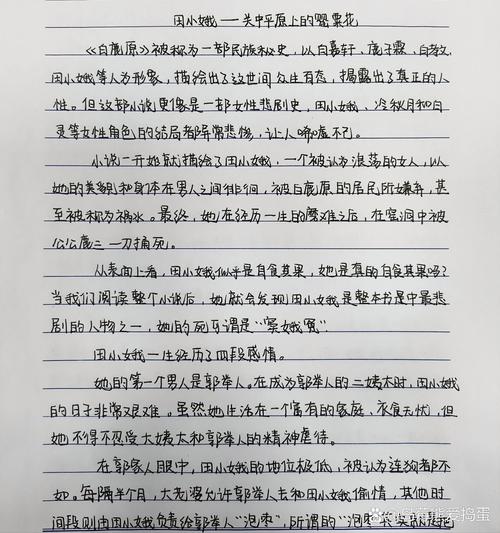 田小娥——关中平原上的罂粟花
《白鹿原》被称为一部民族秘史，以白嘉轩、鹿子霖、白孝文、
田小娥等人为形象，描绘出了这世间众生百态，揭露出了真正的人
性。但这部小说更像是一部女性悲剧史，田小娥、冷秋月和白
灵等女性角色的结局都异常悲惨，让人唏嘘不已。
小说一开始就描绘了田小娥，一个被认为浪荡的女人，以
她的美貌和身体在男人之间徘徊，被白鹿原的居民所嫌弃，甚
至被称为祸水。最终，她在经历一生的磨难之后，在窑洞中被
公公鹿三一刀捅死。
从表面上看，田小娥似乎是自食其果，她是真的自食其果吗？
当我们阅读整个小说后，她就会发现田小娥是整本书是中最悲
剧的人物之一，她的死可谓是"窦娥冤"
田小娥一生经历了四段感情。
她的第一个男人是郭举人。在成为郭举人的二姨太时，田小娥
的日子非常艰难。虽然她生活在一个富有的家庭、衣食无忧，但
她不得不忍受大姨太和郭举人的精神虐待。
在郭家人眼中，田小娥的地位极低，被认为连狗都不
如。每隔半个月，大老婆允许郭举人去和田小娥偷情，其他时
间段则由田小娥负责给郭举人"泡枣"，所谓的"泡枣
爱捣蛋